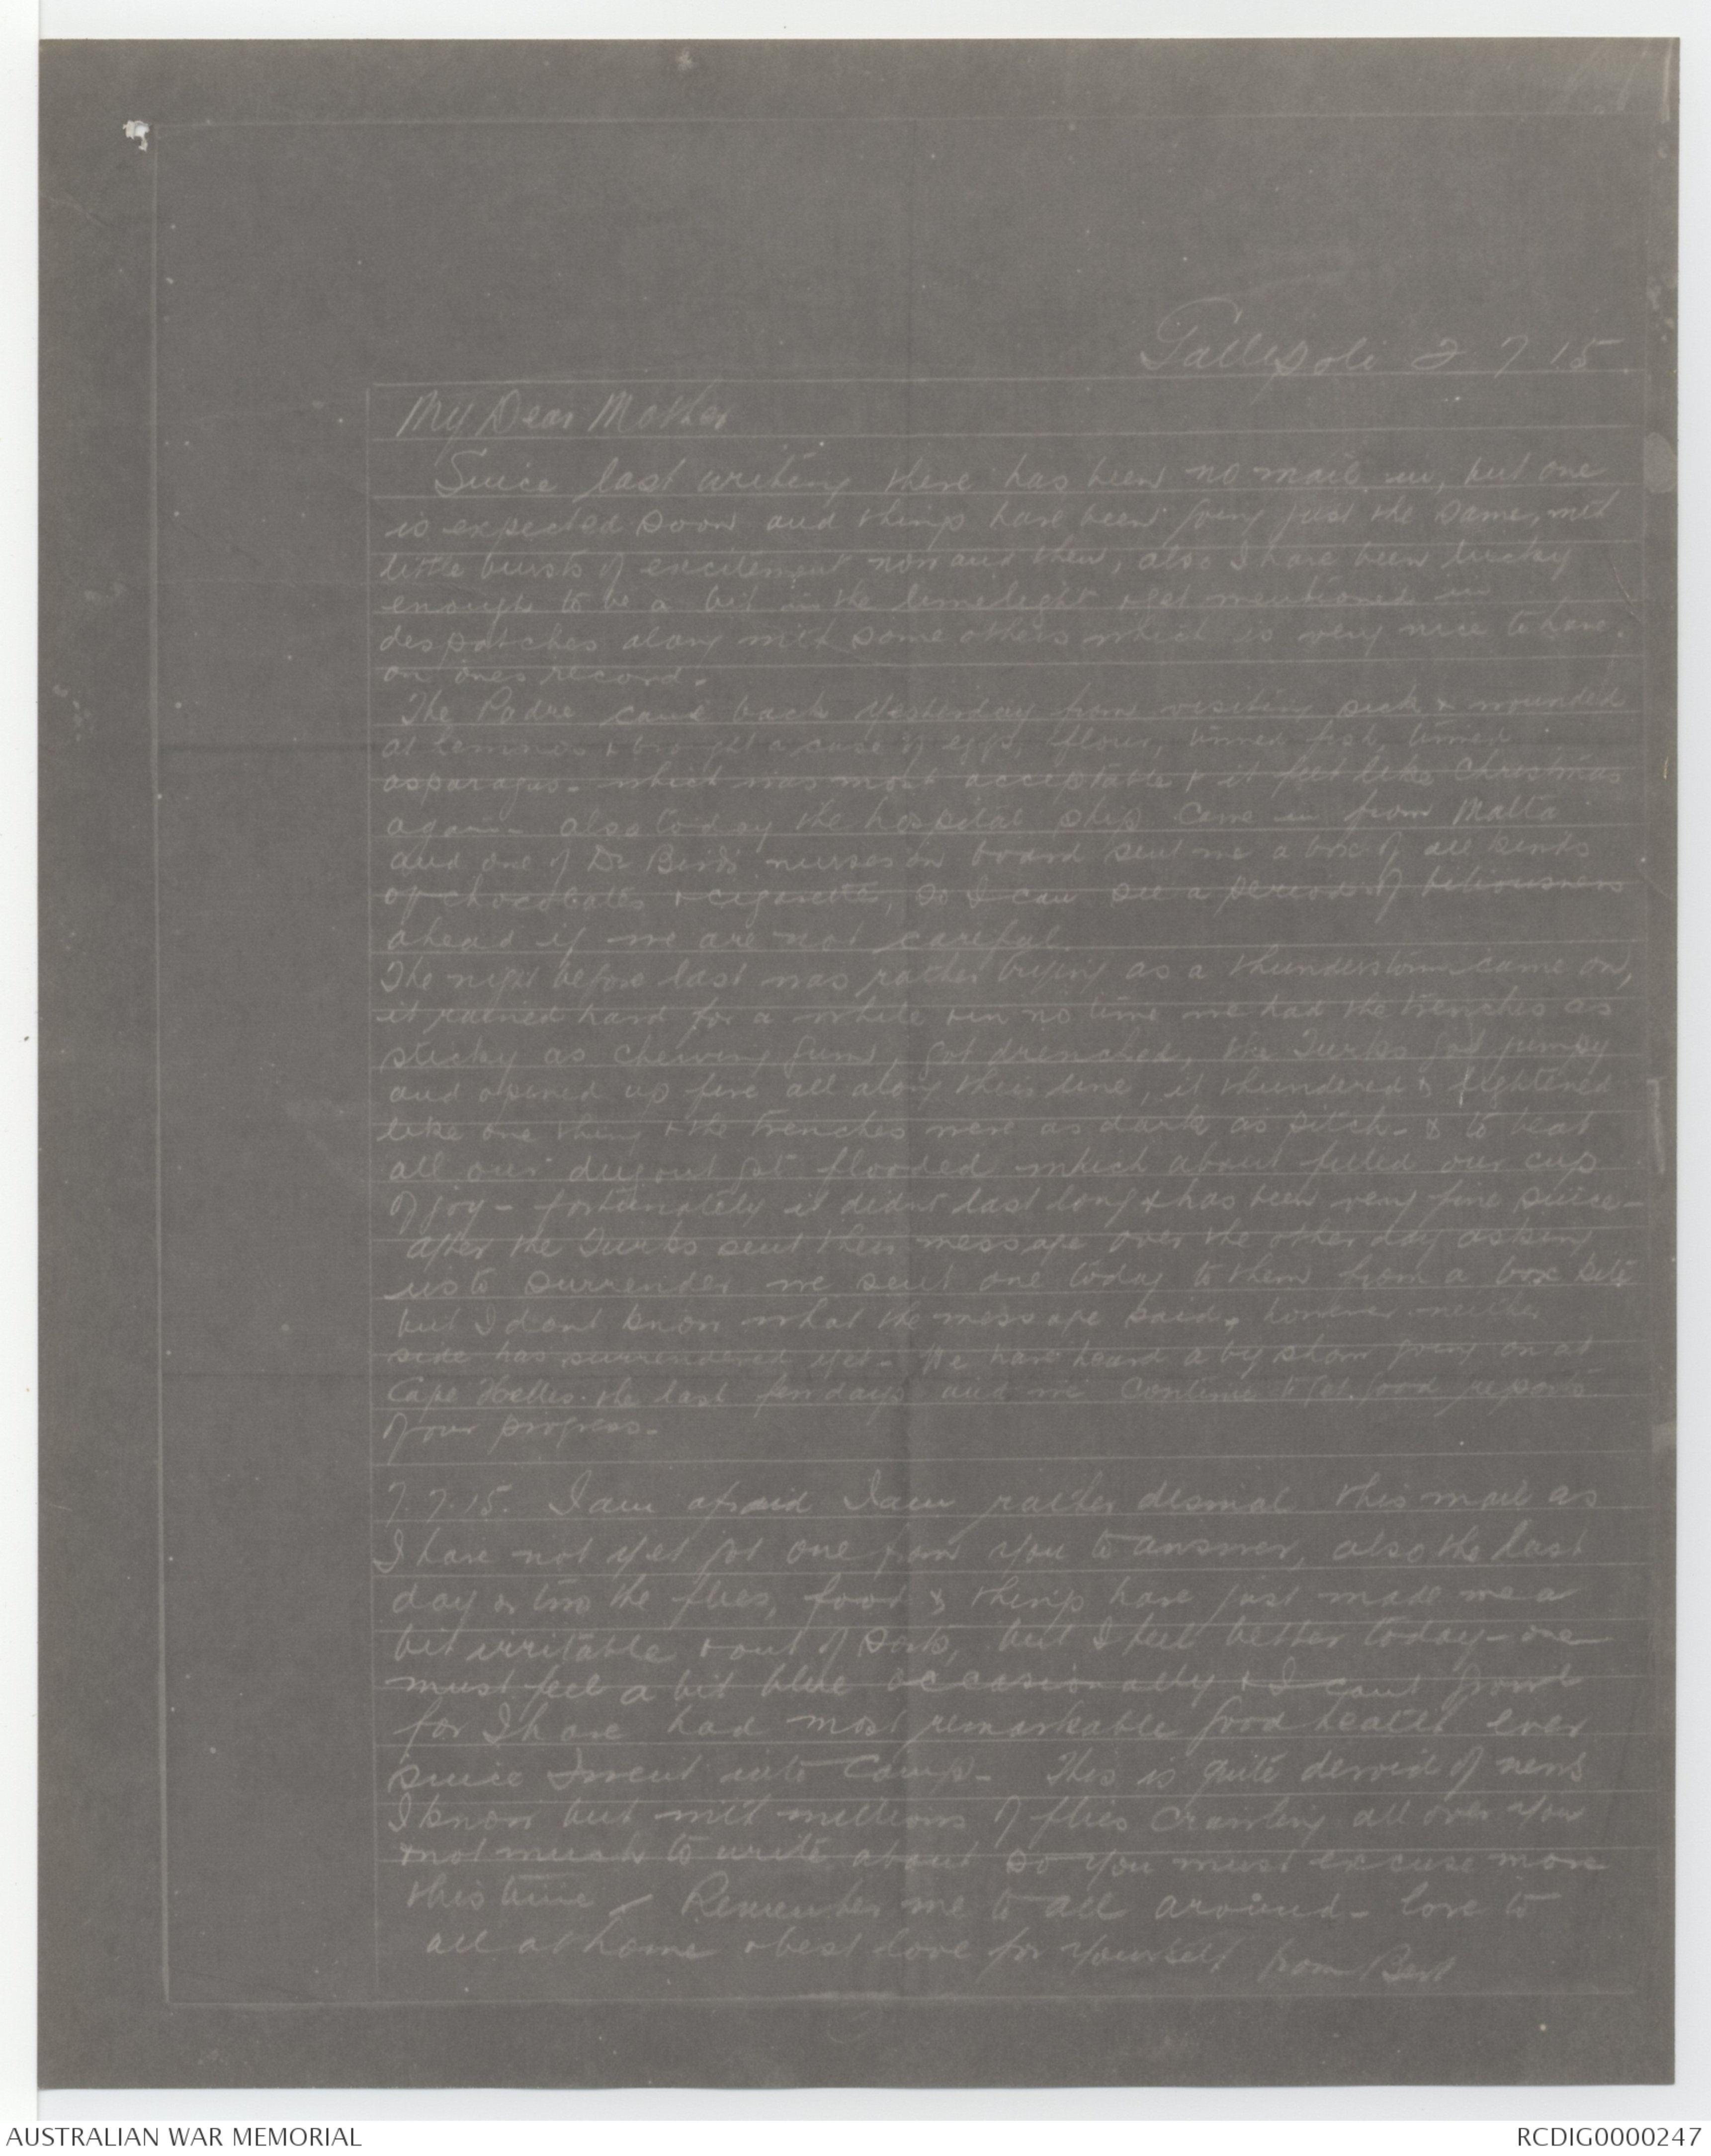 Gallipoli 2 7 15
My Dear Mother
Since last writing there has been no mail in, but one
is expected soon and things have been going just the same, with
little bursts of excitement now and then, also I have been lucky
enough to be a bit in the limelight & get mentioned in
despatches along with some others which is very nice to have
on ones record.
The Padre came back yesterday from visiting sick & wounded
at Lemnos & brought a case of eggs, flour, tinned fish, tinned
asparagus - which was most acceptable & it felt like Christmas
again - also today the hospital ship came in from Malta
and one of Dr Birds nurses on board sent me a box of all kinds
of chocolates & cigarettes, so I can see a period of biliousness
ahead if we are not careful.
The night before last was rather trying as a thunderstorm came on,
it rained hard for a while & in no time we had the trenches as
sticky as chewing gum, got drenched, the Turks got jumpy
and opened up fire all along their line, it thundered & lightened
like one thing & the trenches were as dark as pitch - & to beat
all our dugout got flooded which about filled our cup
of joy - fortunately it didnt last long & has been very fine since -
after the Turks sent their message over the other day asking
us to surrender we sent one today to them from a box kite
but I dont know what the message said, however neither
side has surrendered yet - We have heard a big show going on at
Cape Helles the last few days and we continue to get good reports
of our progress -
7.7.15. I am afraid I am rather dismal this mail as
I have not yet got one from you to answer, also the last
day or two the flies, food & things have just made me a
bit irritable & out of sorts, but I feel better today - one
must feel a bit blue occasionally & I cant growl
for I have had most remarkable good health ever
since I went into Camp - This is quite devoid of news
I know but with millions of flies crawling all over you
& not much to write about so you must excuse more
this time - Remember me to all around - love to
all at home & best love for yourself from Bert
AUSTRALIAN WAR MEMORIAL
RCDIG0000247